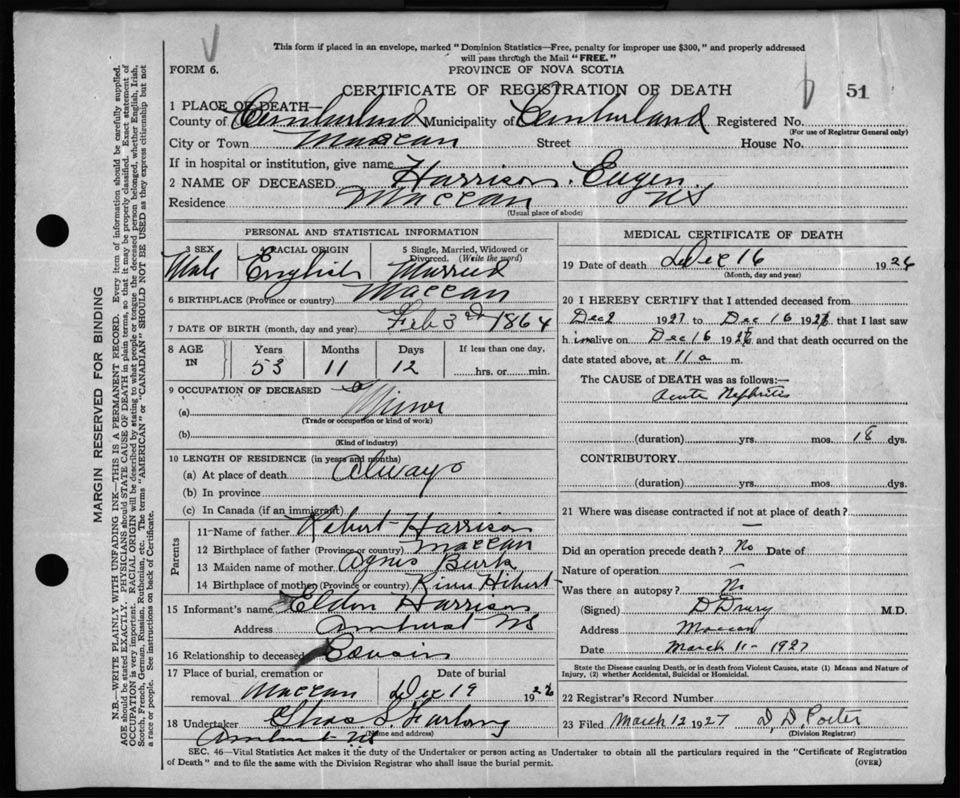 This form if placed in an envelope, marked "Dominion Statistics—Free, penalty for improper use $300," and properly addressed
will pass through the Mail "FREE."
FORM 6.
PROVINCE OF NOVA SCOTIA
CERTIFICATE OF REGISTRATION OF DEATH
51
1 PLACE OF DEATH—
County of Cumberland Municipality of Cumberland Registered No.
(For use of Registrar General only)
City or Town Maccan Street House No.
If in hospital or institution, give name
2 NAME OF DECEASED Harrison. Eugen.
Residence Maccan NS
(Usual place of abode)
PERSONAL AND STATISTICAL INFORMATION
3 SEX Male
4 RACIAL ORIGIN English
5 Single, Married, Widowed or Divorced. (Write the word) Married
6 BIRTHPLACE (Province or country) Maccan
7 DATE OF BIRTH (month, day and year) Feb 3rd 1864
8 AGE IN Years 53 Months 11 Days 12 If less than one day, hrs. or min.
9 OCCUPATION OF DECEASED
(a) Minor
(Trade or occupation or kind of work)
(b)
(Kind of industry)
10 LENGTH OF RESIDENCE (in years and months)
(a) At place of death Always
(b) In province
(c) In Canada (if an immigrant)
Parents
11—Name of father Robert Harrison
12 Birthplace of father (Province or country) Maccan
13 Maiden name of mother Agnes Burk
14 Birthplace of mother (Province or country) River Hibert
15 Informant's name Eldon Harrison
Address Amherst NS
16 Relationship to deceased Cousin
17 Place of burial, cremation or removal Maccan
Date of burial Dec 19 1926
18 Undertaker Chas S Furlong
(Name and address)
Amherst NS
MEDICAL CERTIFICATE OF DEATH
19 Date of death Dec 16 1926
(Month, day and year)
20 I HEREBY CERTIFY that I attended deceased from
Dec 2 1927 to Dec 16 1926 that I last saw
h im alive on Dec 16 1926 and that death occurred on the
date stated above, at 11 a m.
The CAUSE OF DEATH was as follows:—
Acute Nephritis
(duration) yrs. mos. 18 dys.
CONTRIBUTORY
(duration) yrs. mos. dys.
21 Where was disease contracted if not at place of death?
—
Did an operation precede death? No Date of
Nature of operation —
Was there an autopsy? No
(Signed) D Drury M.D.
Address Maccan
Date March 11 - 1927
State the Disease causing Death, or in death from Violent Causes, state (1) Means and Nature of
Injury, (2) whether Accidental, Suicidal or Homicidal.
22 Registrar's Record Number
23 Filed March 12 1927 D. D. Porter
(Division Registrar)
SEC. 46—Vital Statistics Act makes it the duty of the Undertaker or person acting as Undertaker to obtain all the particulars required in the "Certificate of Registration
of Death" and to file the same with the Division Registrar who shall issue the burial permit.
(OVER)
MARGIN RESERVED FOR BINDING
N.B.—WRITE PLAINLY WITH UNFADING INK—THIS IS A PERMANENT RECORD. Every item of information should be carefully supplied.
AGE should be stated EXACTLY. PHYSICIANS should STATE CAUSE OF DEATH in plain terms, so that it may be properly classified. Exact statement of
OCCUPATION is very important. RACIAL ORIGIN will be described by stating to what people or tongue the deceased person belonged, whether English, Irish,
Scotch, French, German, Russian, Ruthenian, etc. The terms "AMERICAN" or "CANADIAN" SHOULD NOT BE USED as they express citizenship but not
a race or people. See instructions on back of Certificate.